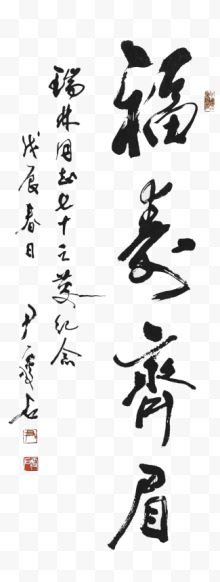 福寿齐眉
瑞林同志七十三荣纪念
戊辰春日
尹瘦石